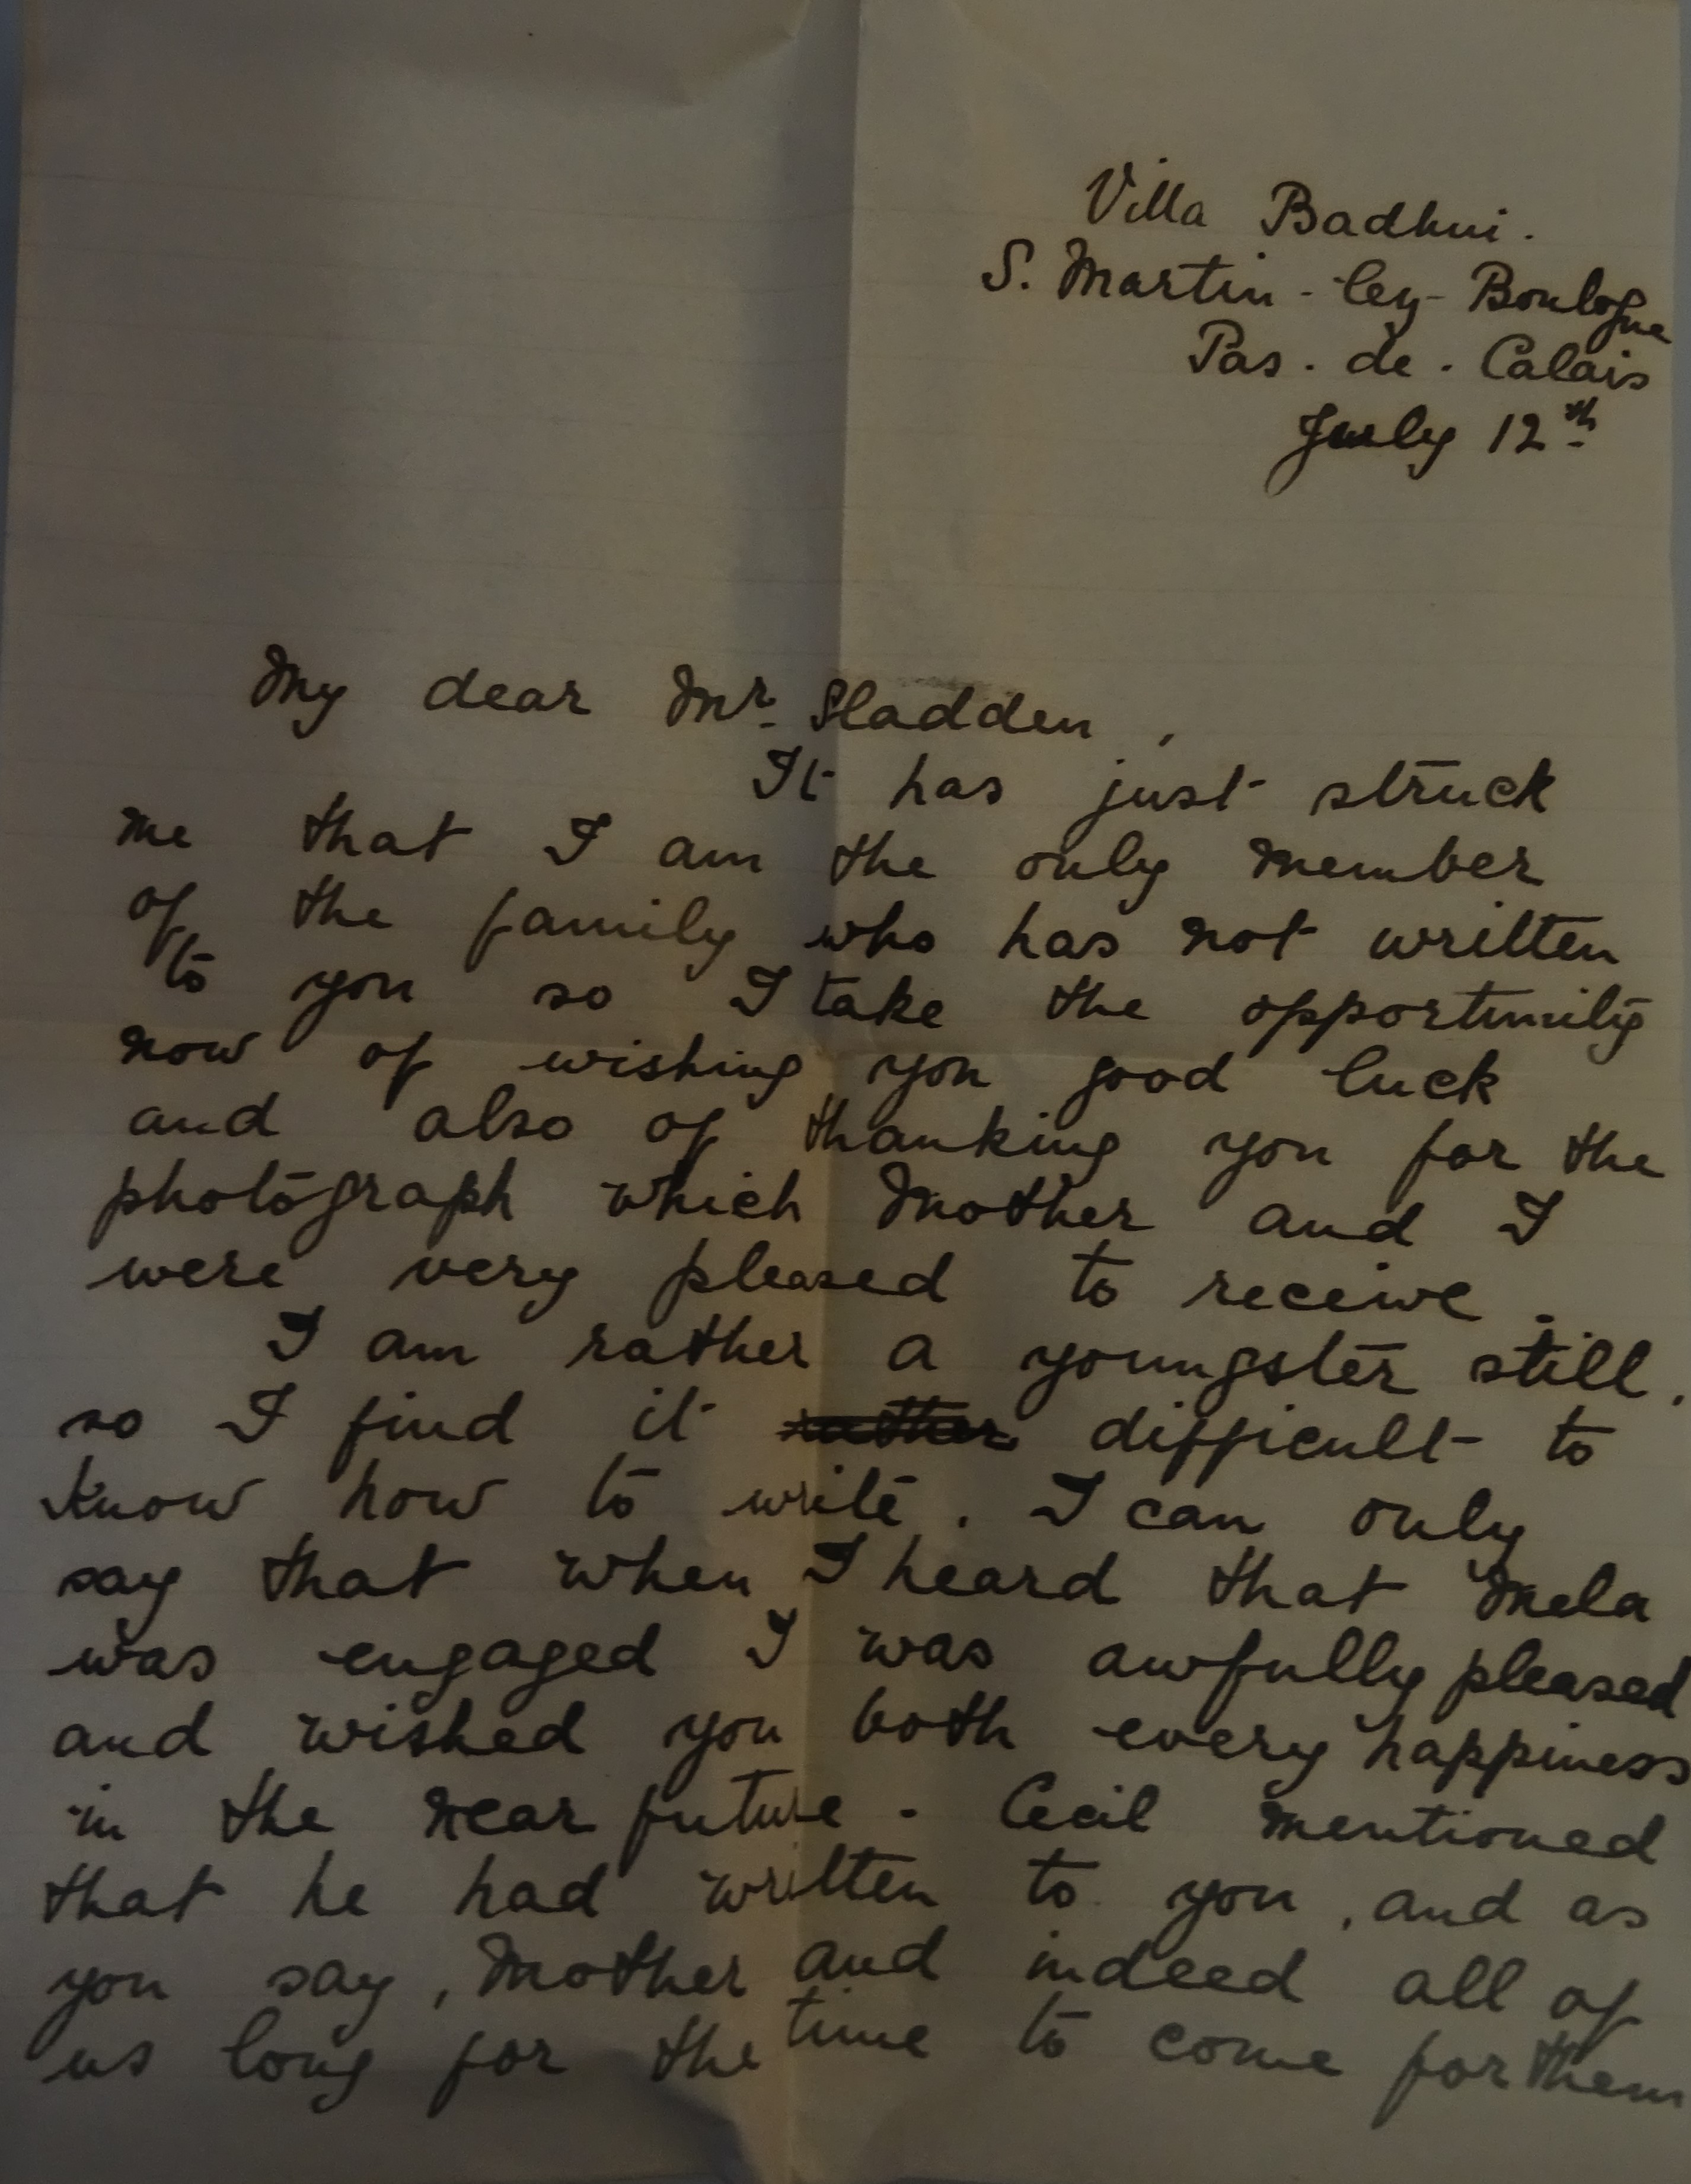 Villa Badhui.
S. Martin-ley-Boulogne
Pas. de. Calais
July 12th
My dear Mr. Sladden,
It has just struck
me that I am the only member
of the family who has not written
to you so I take the opportunity
now of wishing you good luck
and also of thanking you for the
photograph which Mother and I
were very pleased to receive.
I am rather a youngster still,
so I find it rather difficult to
know how to write. I can only
say that when I heard that Mela
was engaged I was awfully pleased
and wished you both every happiness
in the near future. Cecil mentioned
that he had written to you, and as
you say, Mother and indeed all of
us long for the time to come for them